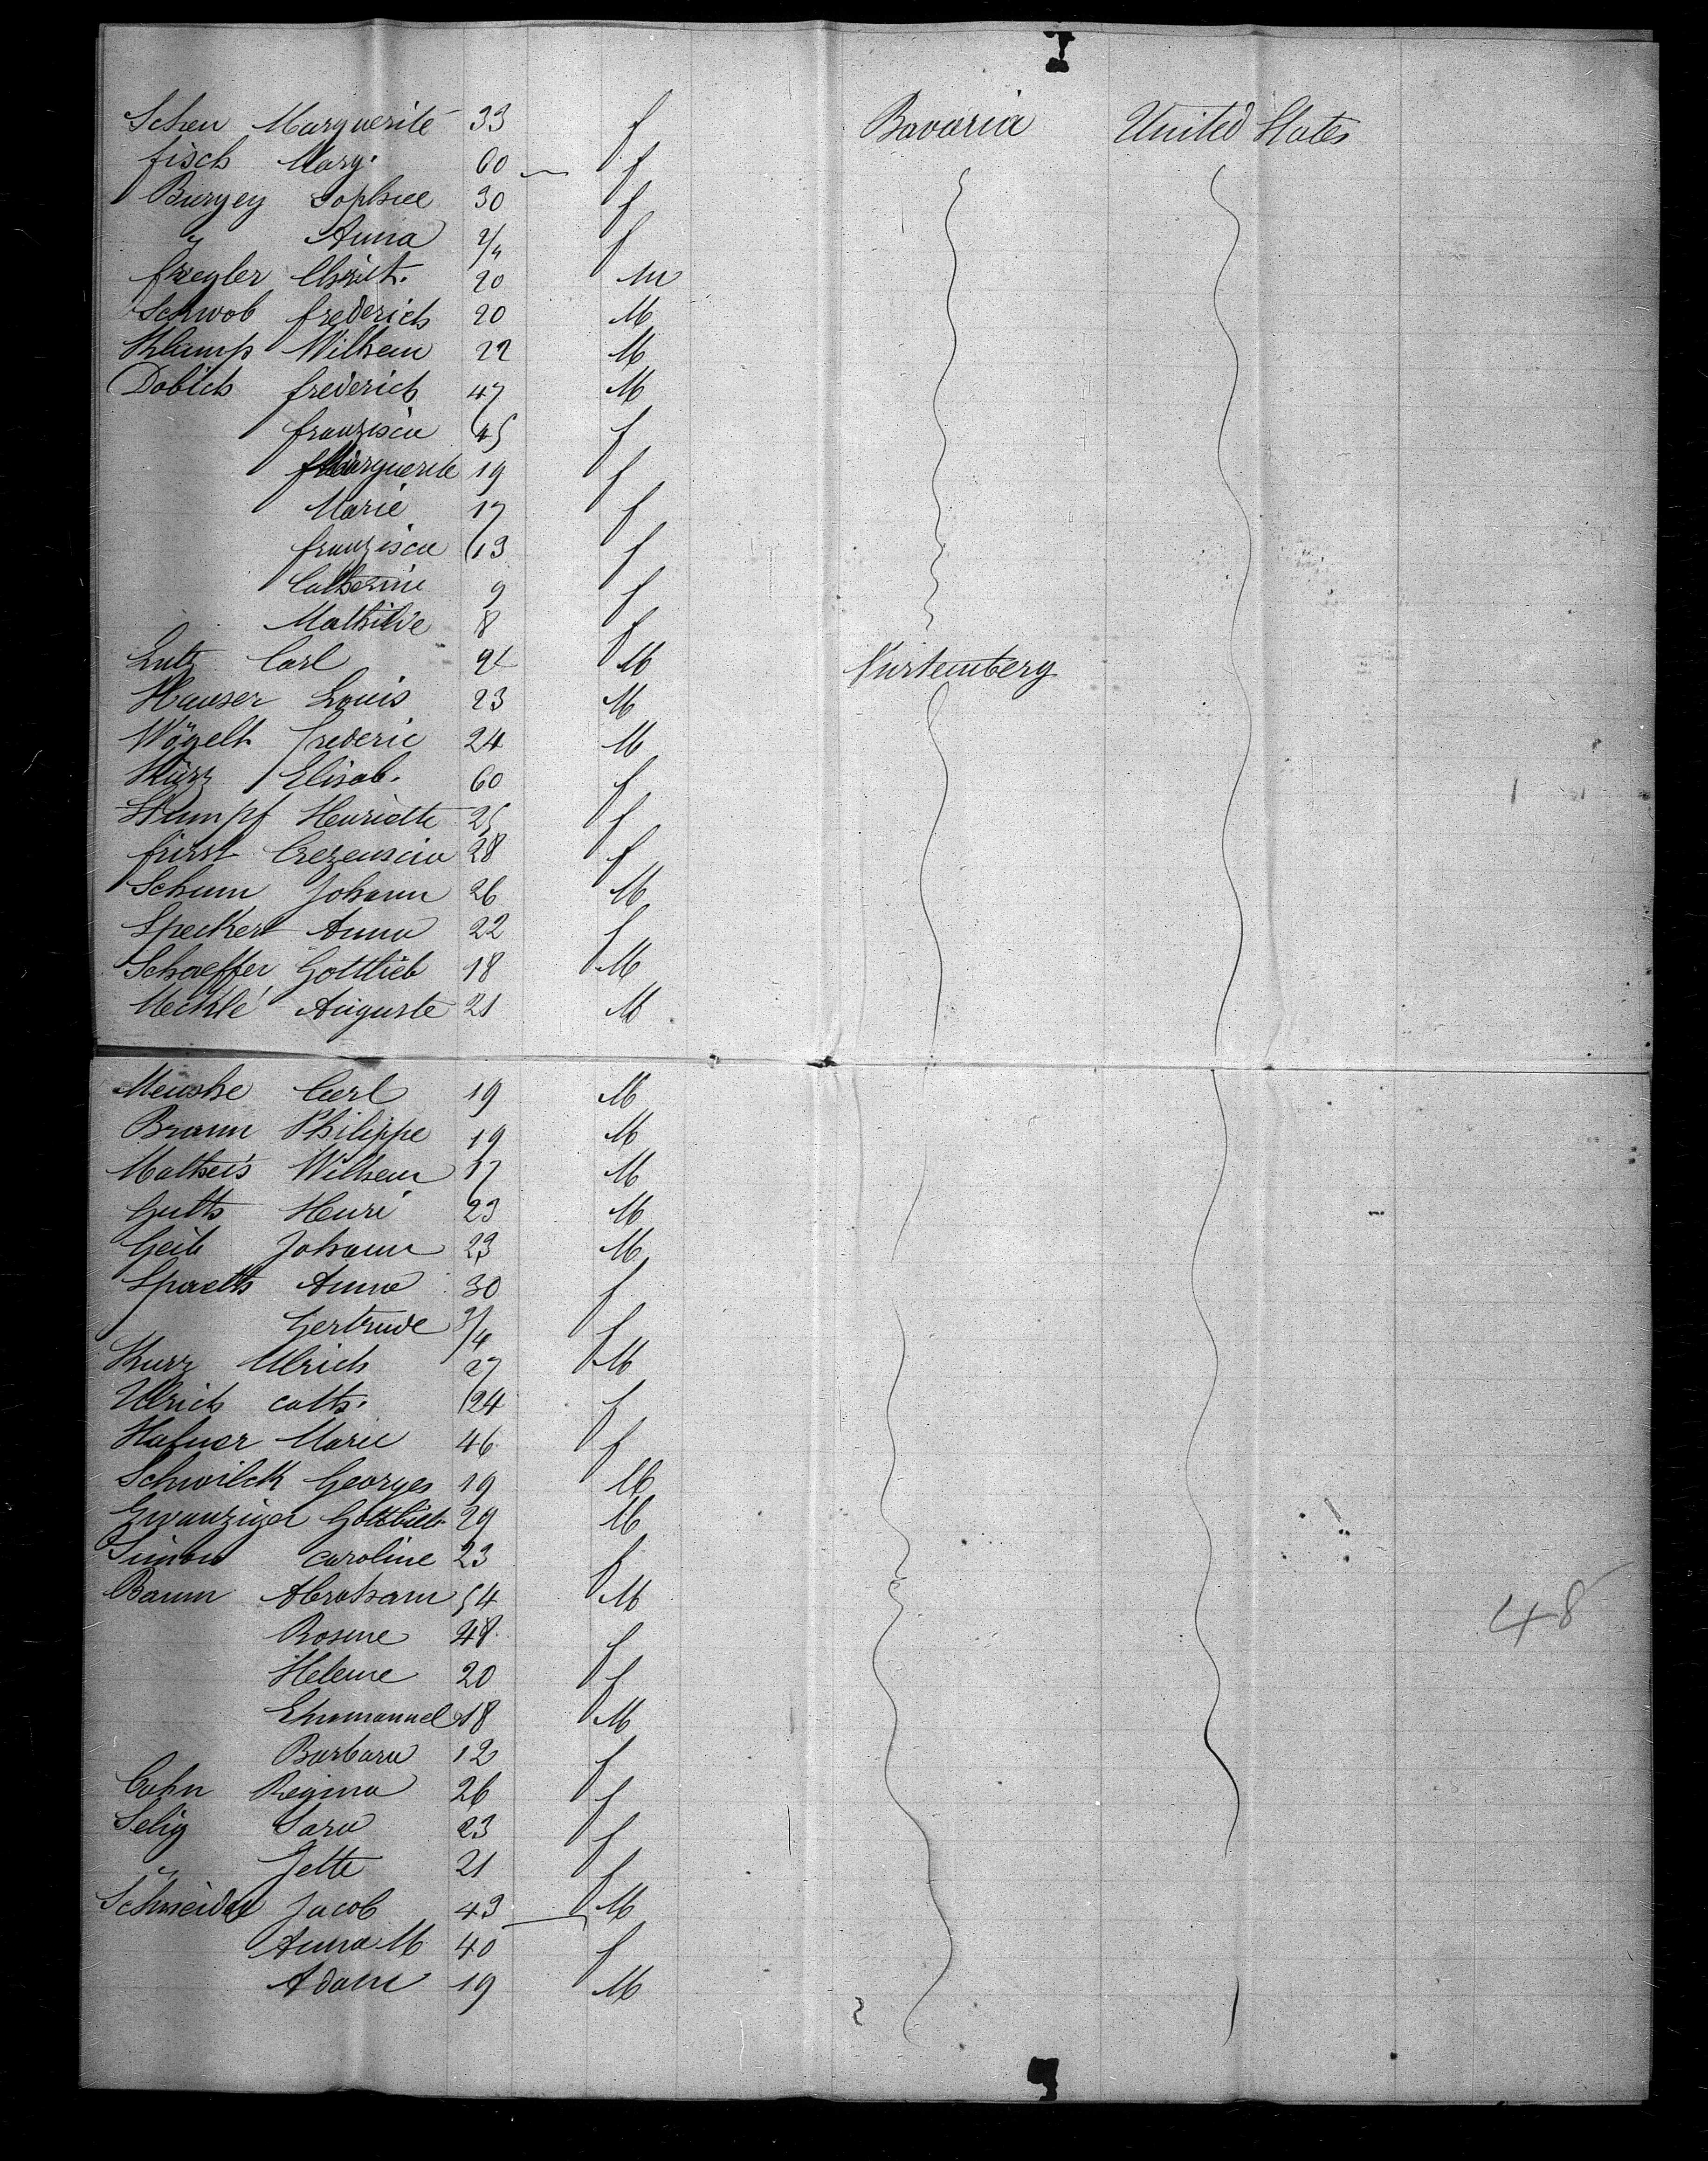 Scheu Marguerite 33 f Bavaria United States
fisch Mary. 60 f
Burgey Sophie 30 f
" Anna 2/4 f
Christ. 20 M
Schwob frederich 20 M
Klump Wilhem 22 M
Dobich frederich 47 M
franzisca 45 f
Marguerite 19 f
Marie 17 f
franzisca 13 f
Catherine 9 f
Mathilde 8 f
Lutz Carl 24 M Wurtemberg
Hauser Louis 23 M
Wögelt frederic 24 M
Kurz Elisab. 60 f
Stumpf Henriette 25 f
fürst Crezensia 28 f
Schum Johann 26 M
Specker Anna 22 f
Schaeffer Gottlieb 18 M
Mecklé Auguste 21 M
Menske Carl 19 M
Braun Philippe 19 M
Matheis Wilhem 17 M
Guth Henri 23 M
Geib Johann 23 M
Spaeth Anna 30 f
Gertrude 3/4 f
Kurz Ulrich 27 M
Ulrich cath. 24 f
Hafner Marie 46 f
Schwilck Georges 19 M
Zwanziger Gottlieb 29 M
Simon caroline 23 f
Baum Abraham 54 M
Rosine 48 f 48
Helene 20 f
Emmanuel 18 M
Barbara 12 f
Cohn Regina 26 f
Selig Sara 23 f
" Jette 21 f
Schneider Jacob 43 M
Anna M 40 f
Adam 19 M